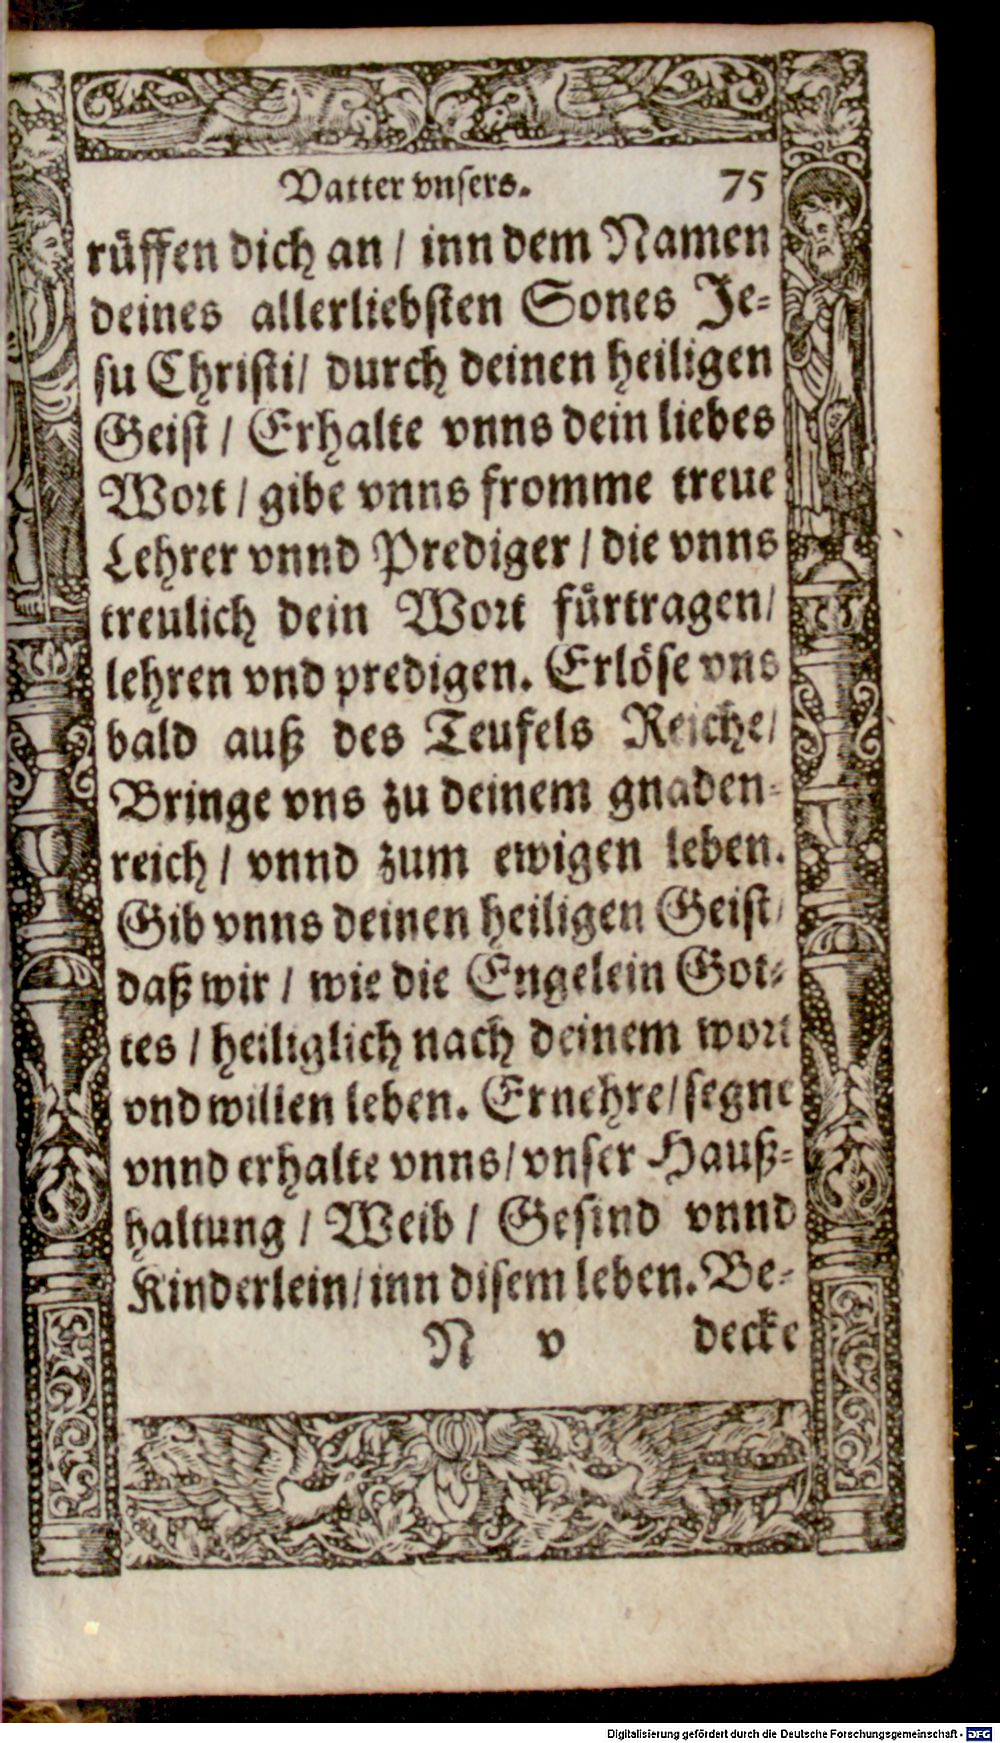 Vatter vnsers. 75
rüffen dich an / inn dem Namen
deines allerliebsten Sones Je=
su Christi / durch deinen heiligen
Geist / Erhalte vnns dein liebes
Wort / gibe vnns fromme treue
Lehrer vnnd Prediger / die vnns
treulich dein Wort fürtragen /
lehren vnd predigen. Erlöse vns
bald auß des Teufels Reiche /
Bringe vns zu deinem gnaden=
reich / vnnd zum ewigen leben.
Gib vnns deinen heiligen Geist /
daß wir / wie die Engelein Got=
tes / heiliglich nach deinem wort
vnd willen leben. Ernehre / segne
vnnd erhalte vnns / vnser Hauß=
haltung / Weib / Gesind vnnd
Kinderlein / inn disem leben. Be=
N v decke
Digitalisierung gefördert durch die Deutsche Forschungsgemeinschaft - DFG